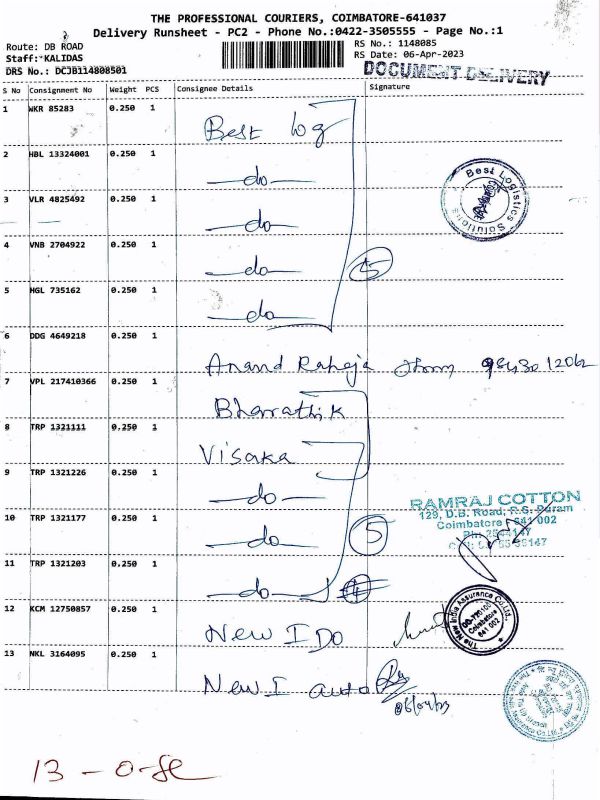 THE PROFESSIONAL COURIERS, COIMBATORE-641037
Delivery Runsheet - PC2 - Phone No.:0422-3505555 - Page No.:1
Route: DB ROAD
RS No.: 1148085
Staff: KALIDAS
RS Date: 06-Apr-2023
DRS No.: DCJB114808501
DOCUMENT DELIVERY
S No Consignment No Weight PCS Consignee Details Signature
1 WKR 85283 0.250 1 Best log
2 HBL 13324001 0.250 1 do
3 VLR 4825492 0.250 1 do
4 VNB 2704922 0.250 1 do
5
5 HGL 735162 0.250 1 do
6 DDG 4649218 0.250 1 Anand Raheja
7 VPL 217410366 0.250 1 Bharathi K
8 TRP 1321111 0.250 1 Visaka
9 TRP 1321226 0.250 1 do
10 TRP 1321177 0.250 1 do
5
11 TRP 1321203 0.250 1 do
12 KCM 12750857 0.250 1 New I DO
13 NKL 3164095 0.250 1 New I auto
06/04/23
Best Logistics Solutions
RAMRAJ COTTON
129, D.B. Road, R.S. Puram
Coimbatore - 641 002
The New India Assurance Co. Ltd.
Coimbatore
641 002
13 - 0 -